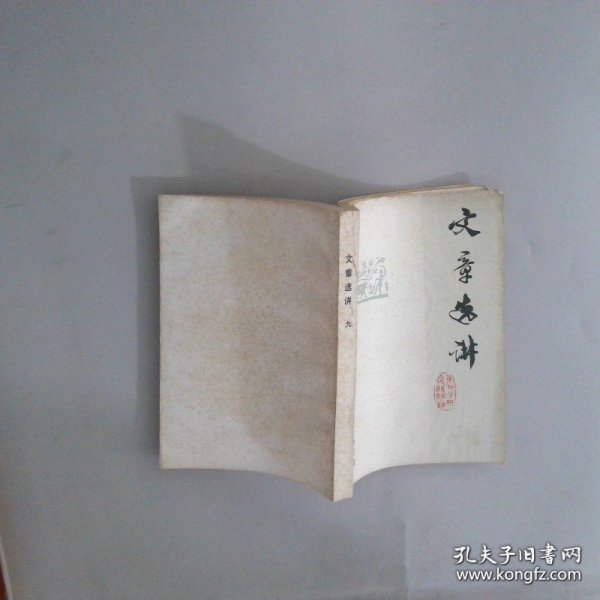 文章选讲
文章选讲 九
孔夫子旧书网
www.kongfz.com